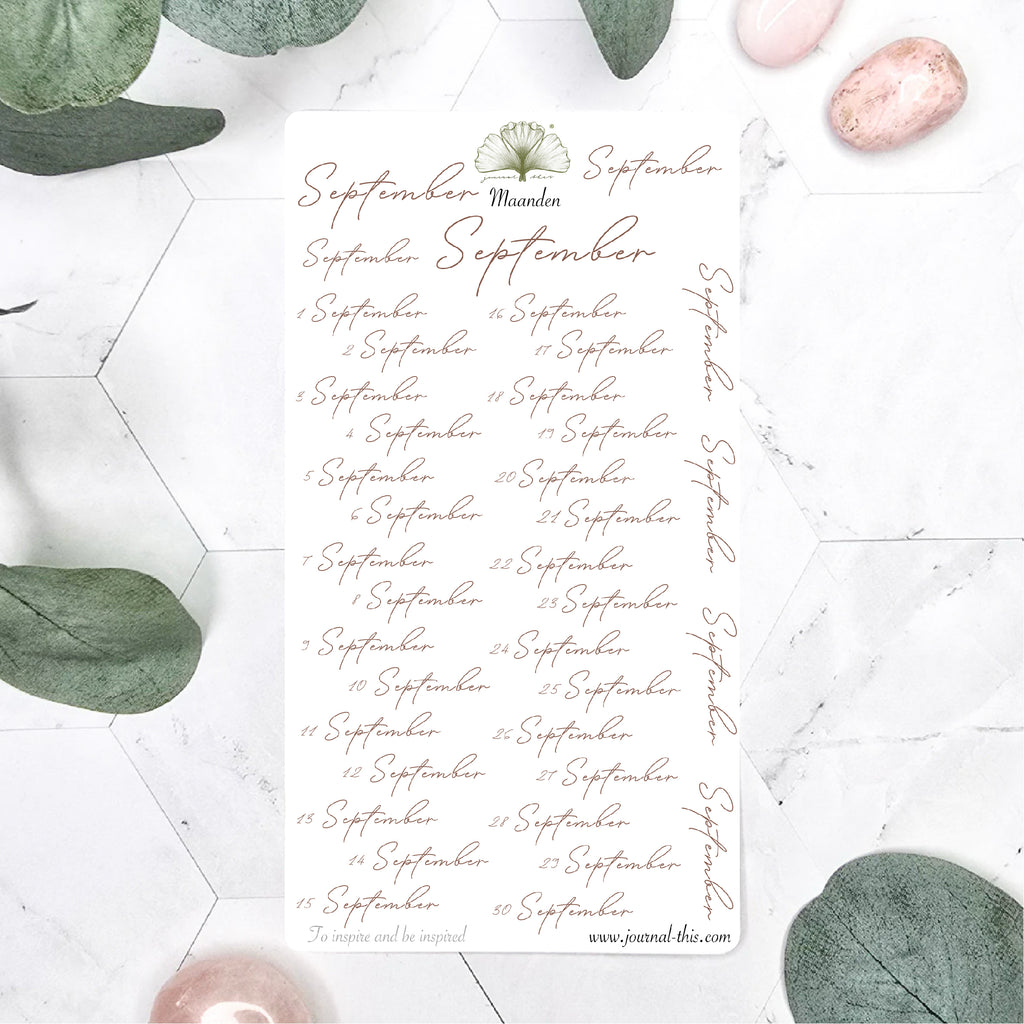 September
journal this
Maanden
September
September
September
1 September
2 September
3 September
4 September
5 September
6 September
7 September
8 September
9 September
10 September
11 September
12 September
13 September
14 September
15 September
16 September
17 September
18 September
19 September
20 September
21 September
22 September
23 September
24 September
25 September
26 September
27 September
28 September
29 September
30 September
September
September
September
September
To inspire and be inspired
www.journal-this.com